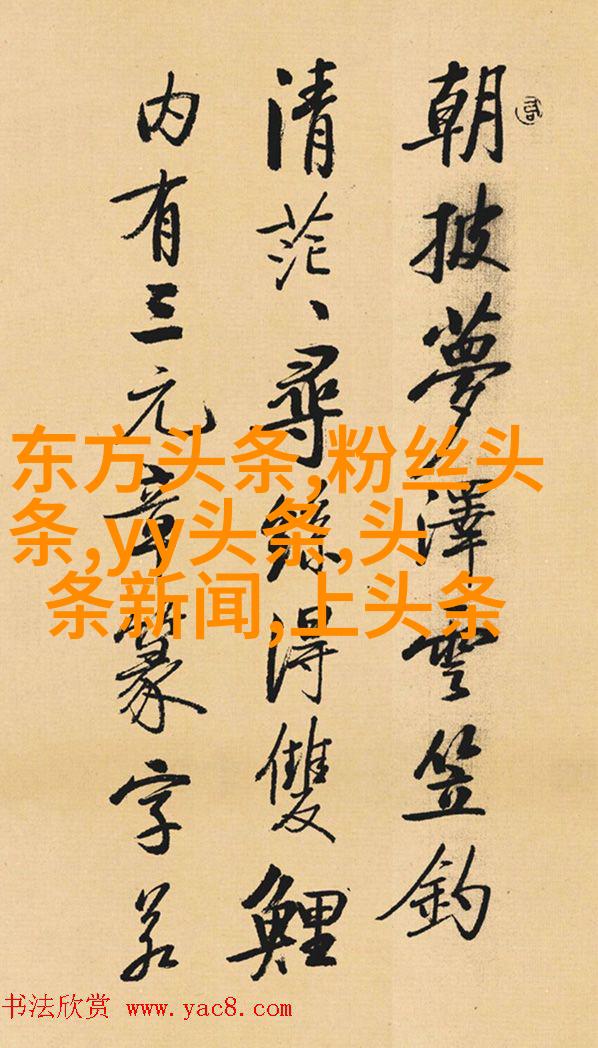 朝披夢澤雲笠釣
清茫、尋絲得雙鯉
内有三元章篆字若
东方头条,粉丝头
条,yy头条,头
条新闻,上头条
书法欣赏 www.yac8.com